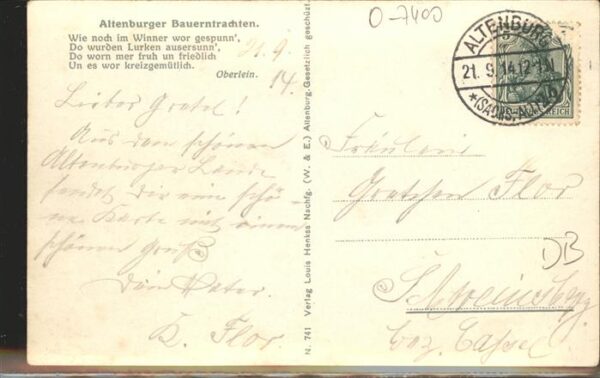 Altenburger Bauerntrachten.
Wie noch im Winner wor gespunn',
Do wurden Lurken ausersunn',
Do worn mer fruh un friedlich
Un es wor kreizgemütlich.
Oberlein.
21.9.
14.
Liebes Gretel!
Aus dem schönen
Altenburger Lande
sendet Dir eine schö-
ne Karte mit einem
schönen Gruß
Dein Vater.
K. Flor.
N. 741 Verlag Louis Henkes' Nachfg. (W. & E.) Altenburg. Gesetzlich geschützt.
O-7400
ALTENBURG
21. 9. 14. 12-1N
*(SACHS.-ALT.)
REICH
Fräulein
Gretchen Flor
DB
Bez. Cassel